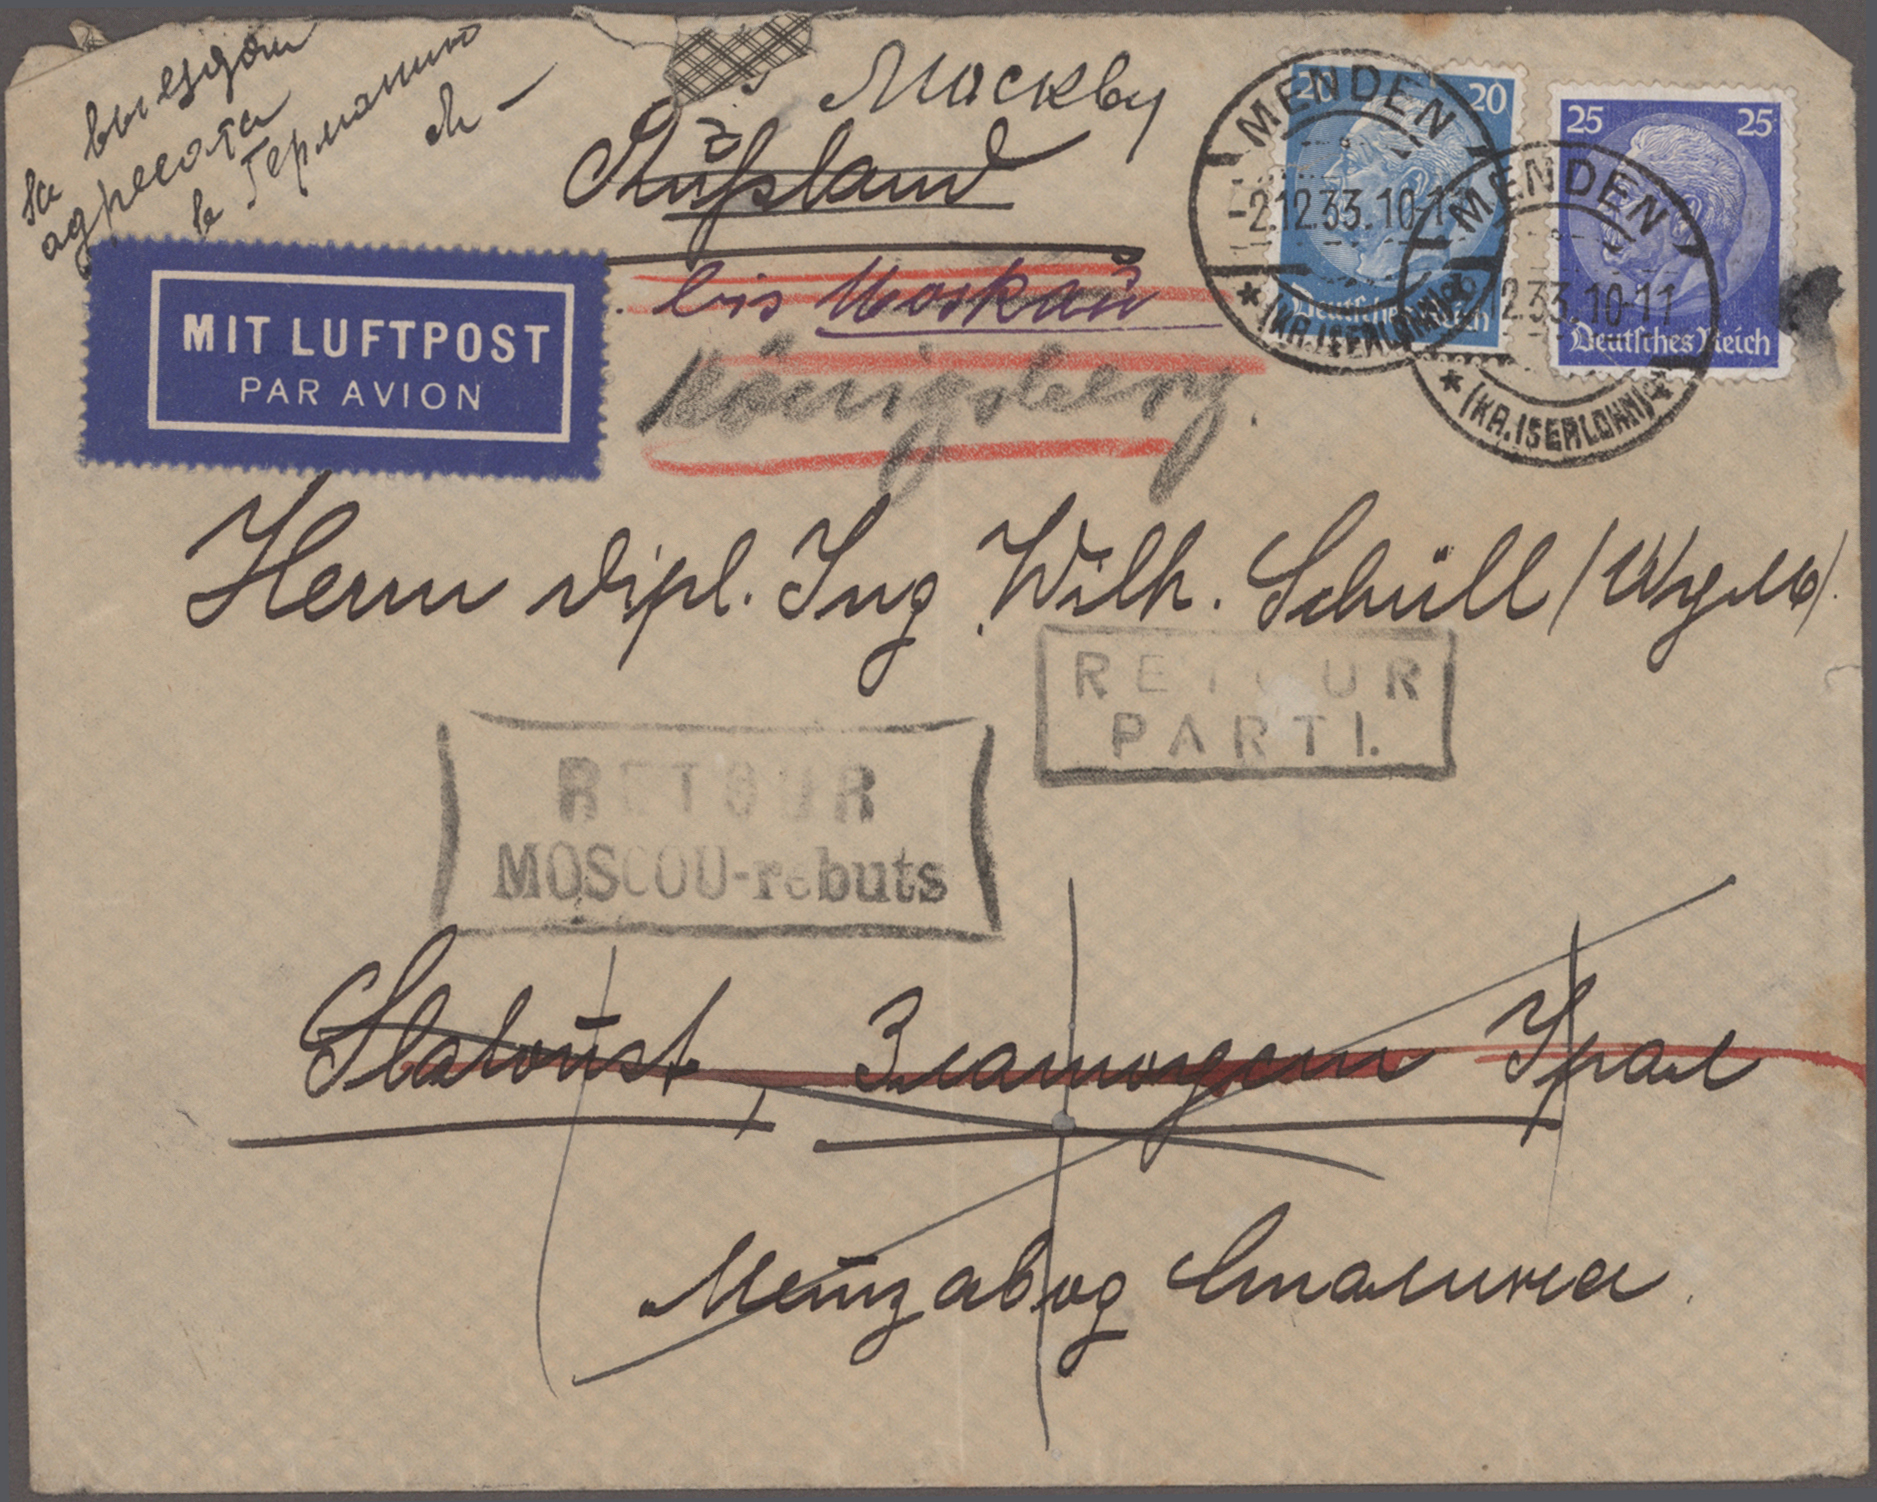 за выездом
адресата
в Германию
г. Москву
Rußland
MIT LUFTPOST
PAR AVION
bis Moskau
Königsberg.
20 20
Deutsches Reich
25 25
Deutsches Reich
MENDEN
-2.12.33.10-11
* (KR.ISERLOHN)
MENDEN
12.33.10-11
* (KR.ISERLOHN)
Herrn Dipl. Ing. Wilh. Schüll
RETOUR
PARTI.
RETOUR
MOSCOU-rebuts
Slatoust, Златоуст Урал
Метзавод Сталина.